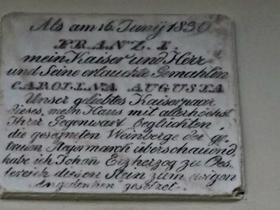 Als am 16 Junÿ 1830
FRANZ I.
mein Kaiser und Herr
und Seine erlauchte Gemahlin
CAROLINA AUGUSTA
Unser geliebtes Kaiserpaar
dieses, mein Haus mit allerhöchst
Ihrer Gegenwart beglückten,
die gesegneten Weinberge der ge-
treuen Steyermarch überschauend
habe ich Johann Erzherzog zu Oes-
terreich diesen Stein zum ewigen
Angedenken gesetzt.